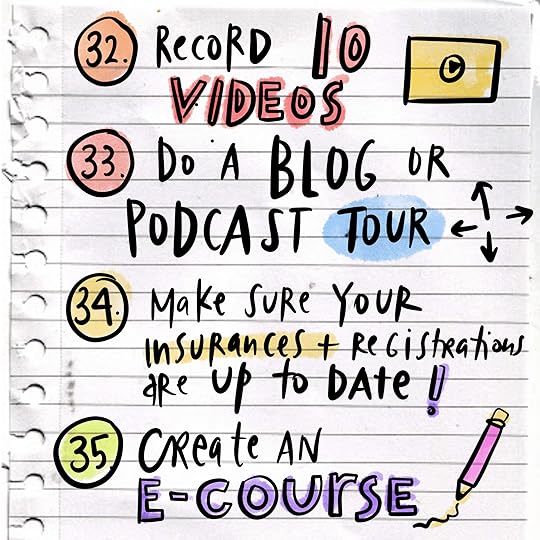 32. RECORD 10
VIDEOS
33. DO A BLOG OR
PODCAST TOUR
34. MAKE SURE YOUR
INSURANCES + REGISTRATIONS
ARE UP TO DATE!
35. CREATE AN
E-COURSE